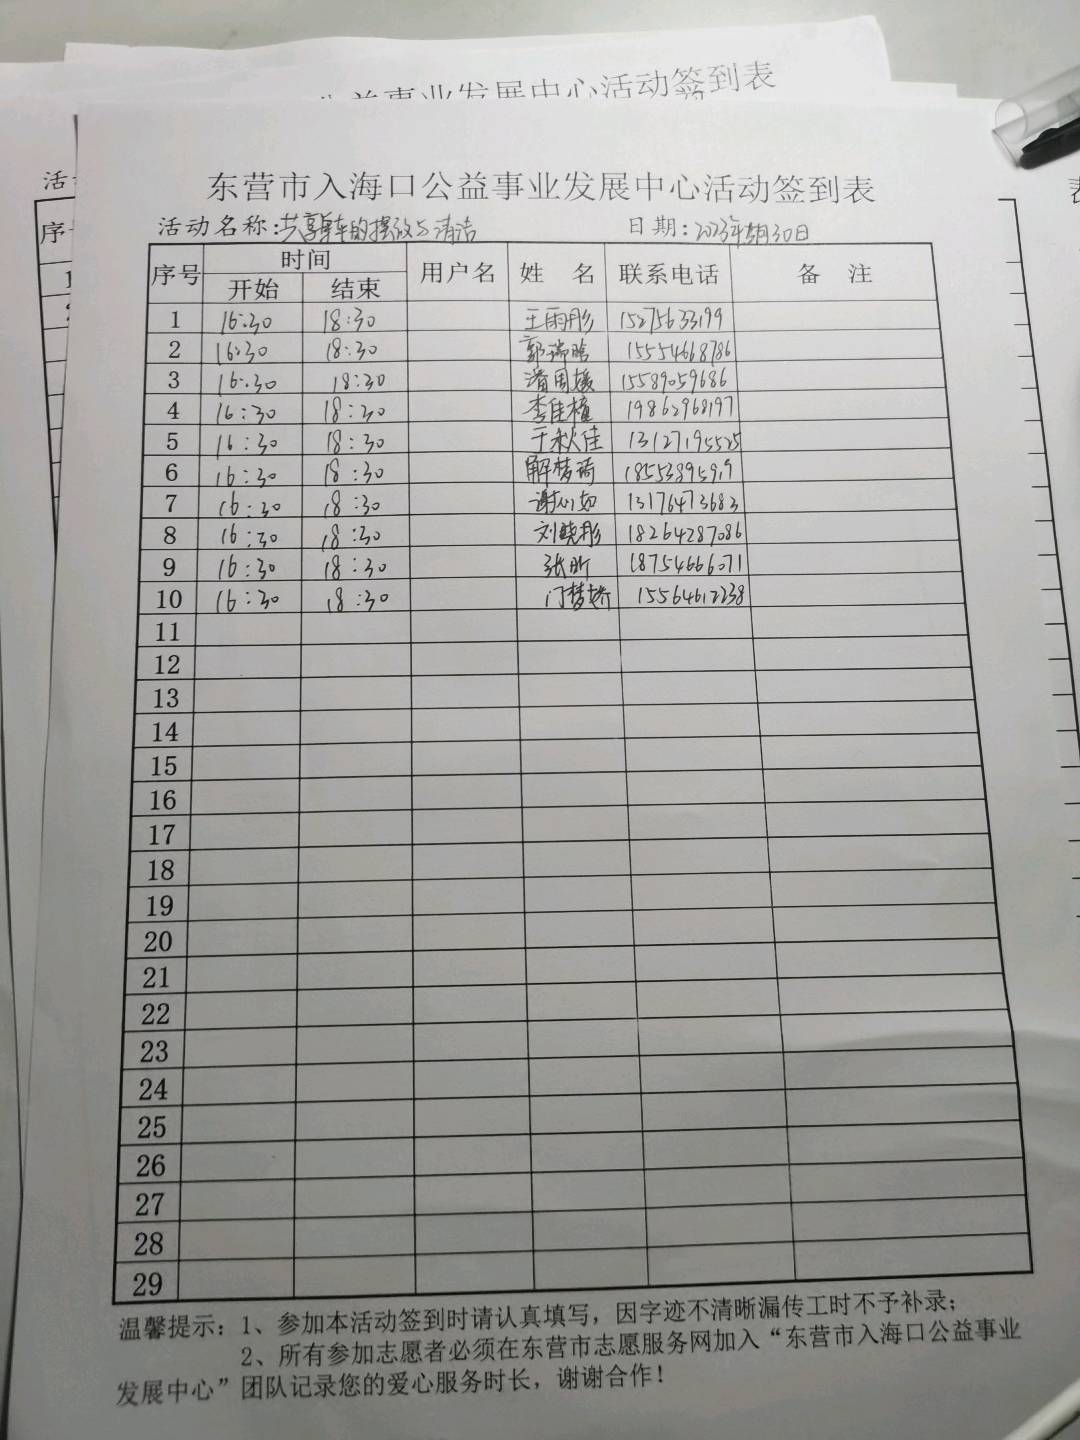 公益事业发展中心活动签到表
东营市入海口公益事业发展中心活动签到表
活动名称:共享单车的摆放与清洁 日期:2023年5月30日
序号 时间 用户名 姓名 联系电话 备注
开始 结束
1 16:30 18:30 王雨彤 15275633199
2 16:30 18:30 郭瑞晗 15554668786
3 16:30 18:30 潘周媛 15589059686
4 16:30 18:30 李佳橦 19862968197
5 16:30 18:30 于秋佳 13127195525
6 16:30 18:30 解梦琦 18553895919
7 16:30 18:30 谢心如 13176473683
8 16:30 18:30 刘晓彤 18264287086
9 16:30 18:30 张昕 18754666071
10 16:30 18:30 门梦娇 15564612238
11
12
13
14
15
16
17
18
19
20
21
22
23
24
25
26
27
28
29
温馨提示:1、参加本活动签到时请认真填写，因字迹不清晰漏传工时不予补录;
2、所有参加志愿者必须在东营市志愿服务网加入“东营市入海口公益事业
发展中心”团队记录您的爱心服务时长，谢谢合作!